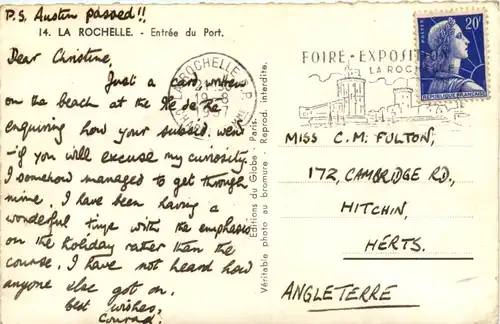 P.S. Austin passed!!
14. LA ROCHELLE. - Entrée du Port.
Dear Christine,
Just a card, written
on the beach at the Ile de Ré,
enquiring how your subsid. went
- if you will excuse my curiosity.
I somehow managed to get through
mine. I have been having a
wonderful time with the emphasis
on the holiday rather than the
course. I have not heard how
anyone else got on.
Best wishes,
Conrad.
Editions du Globe - Paris.
Véritable photo au bromure - Reprod. interdite.
LA ROCHELLE R.P.
FOIRE-EXPOSIT
LA ROCH
POSTES
20F
REPUBLIQUE FRANÇAISE
MISS C.M. FULTON,
172, CAMBRIDGE RD.,
HITCHIN,
HERTS.
ANGLETERRE